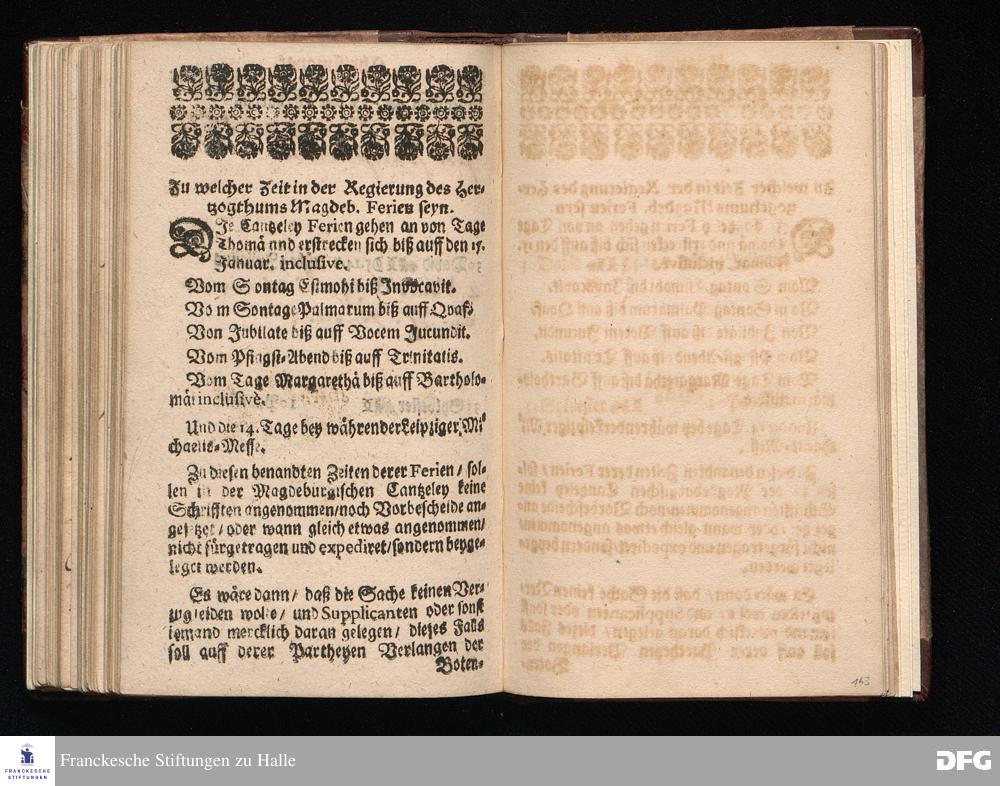 Zu welcher Zeit in der Regierung des Her-
tzogthums Magdeb. Ferien seyn.
DIe Cantzeley Ferien gehen an von Tage
Thomä und erstrecken sich biß auff den 15.
Januar. inclusive.
Vom Sontag Estmohi biß Invocavit.
Vom Sontage Palmarum biß auff Qvas:
Von Jubilate biß auff Vocem Jucundit.
Vom Pfingst-Abend biß auff Trinitatis.
Vom Tage Margarethä biß auff Bartholo-
mäi inclusivè.
Und die 14. Tage bey währender Leipziger Mi
chaelis-Messe.
Zu diesen benandten Zeiten derer Ferien / sol-
len in der Magdeburgischen Cantzeley keine
Schrifften angenommen/noch Vorbescheide an-
gesetzet / oder wann gleich etwas angenommen/
nicht fürgetragen und expediret/sondern beyge-
leget werden.
Es wäre dann / daß die Sache keinen Ver-
zug leiden wolte / und Supplicanten oder sonst
iemand mercklich daran gelegen / dieses Falls
soll auff derer Partheyen Verlangen der
Boten-
163
FRANCKESCHE
STIFTUNGEN
Franckesche Stiftungen zu Halle
DFG